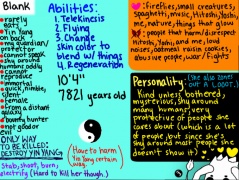 Blank
rarely eats
Yin Yang on back
my guardian/protector
cannot speak
shy around humans oddly
cannot reproduce
immortal
quick, nimble, silent
female
from a distant galaxy
bounty hunter
not good or evil
ONLY WAY TO BE KILLED: DESTROY YIN YANG
Abilities:
1. Telekinesis
2. Flying
3. Change skin color to blend w/ things
4. Regeneration
10'4"
7821 years old
(Have to harm Yin Yang certain way.)
Stab, shoot, burn, electrify (Hard to kill her though.)
: fireflies, small creatures, spaghetti, music, me, nature, things that glow
: people that harm/disrespect me, loud noises, oatmeal raisin cookies, abusive people, war/fights
Personality: (She also zones out A LOOOT.)
Kind unless bothered, mysterious, shy around many humans, very protective of people she cares about (which is a lot of people but since she's shy around most people she doesn't show it)